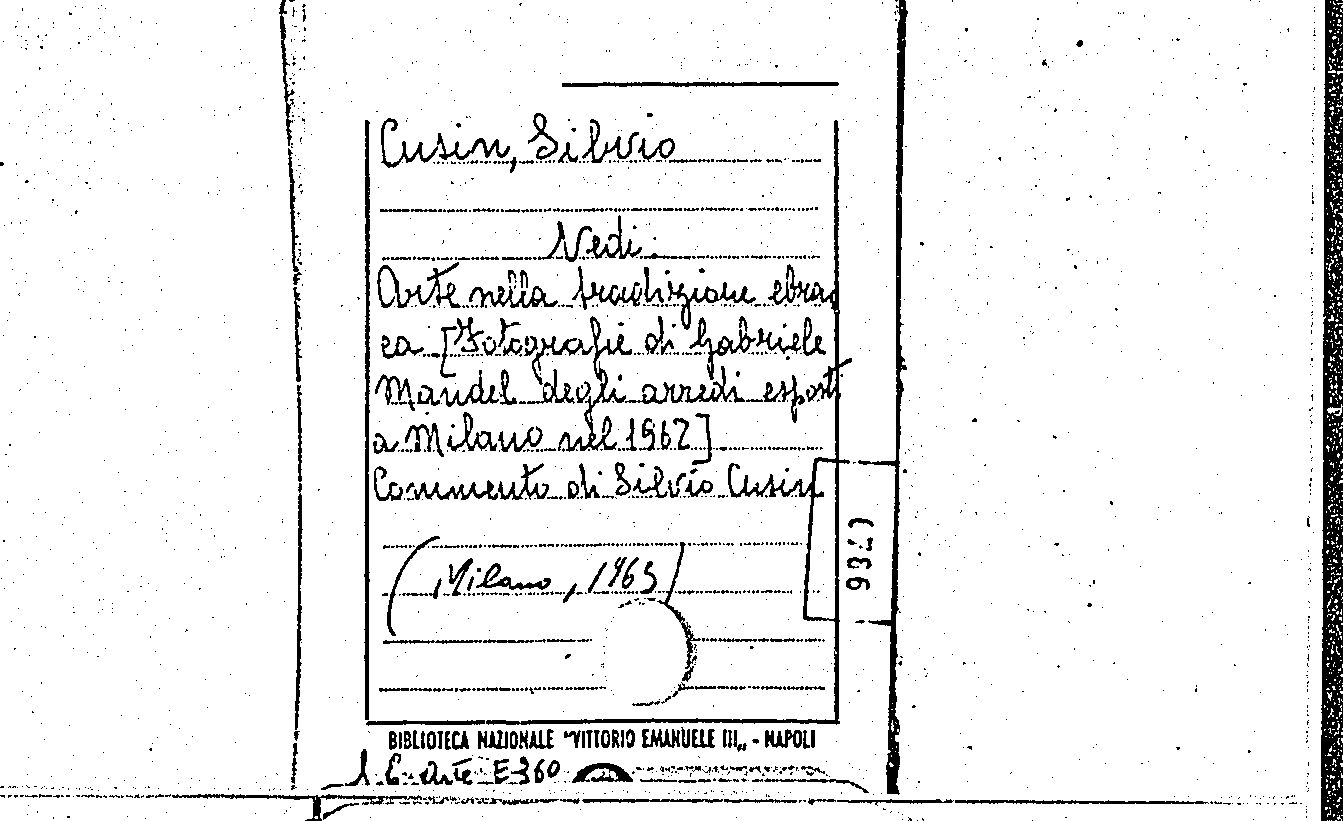 Cusin, Silvio
Vedi:
Arte nella tradizione ebrai
ca [Fotografie di Gabriele
Mandel degli arredi esposti
a Milano nel 1962]
Commento di Silvio Cusin
(Milano, 1963)
BIBLIOTECA NAZIONALE "VITTORIO EMANUELE III„ - NAPOLI
Arte E 360